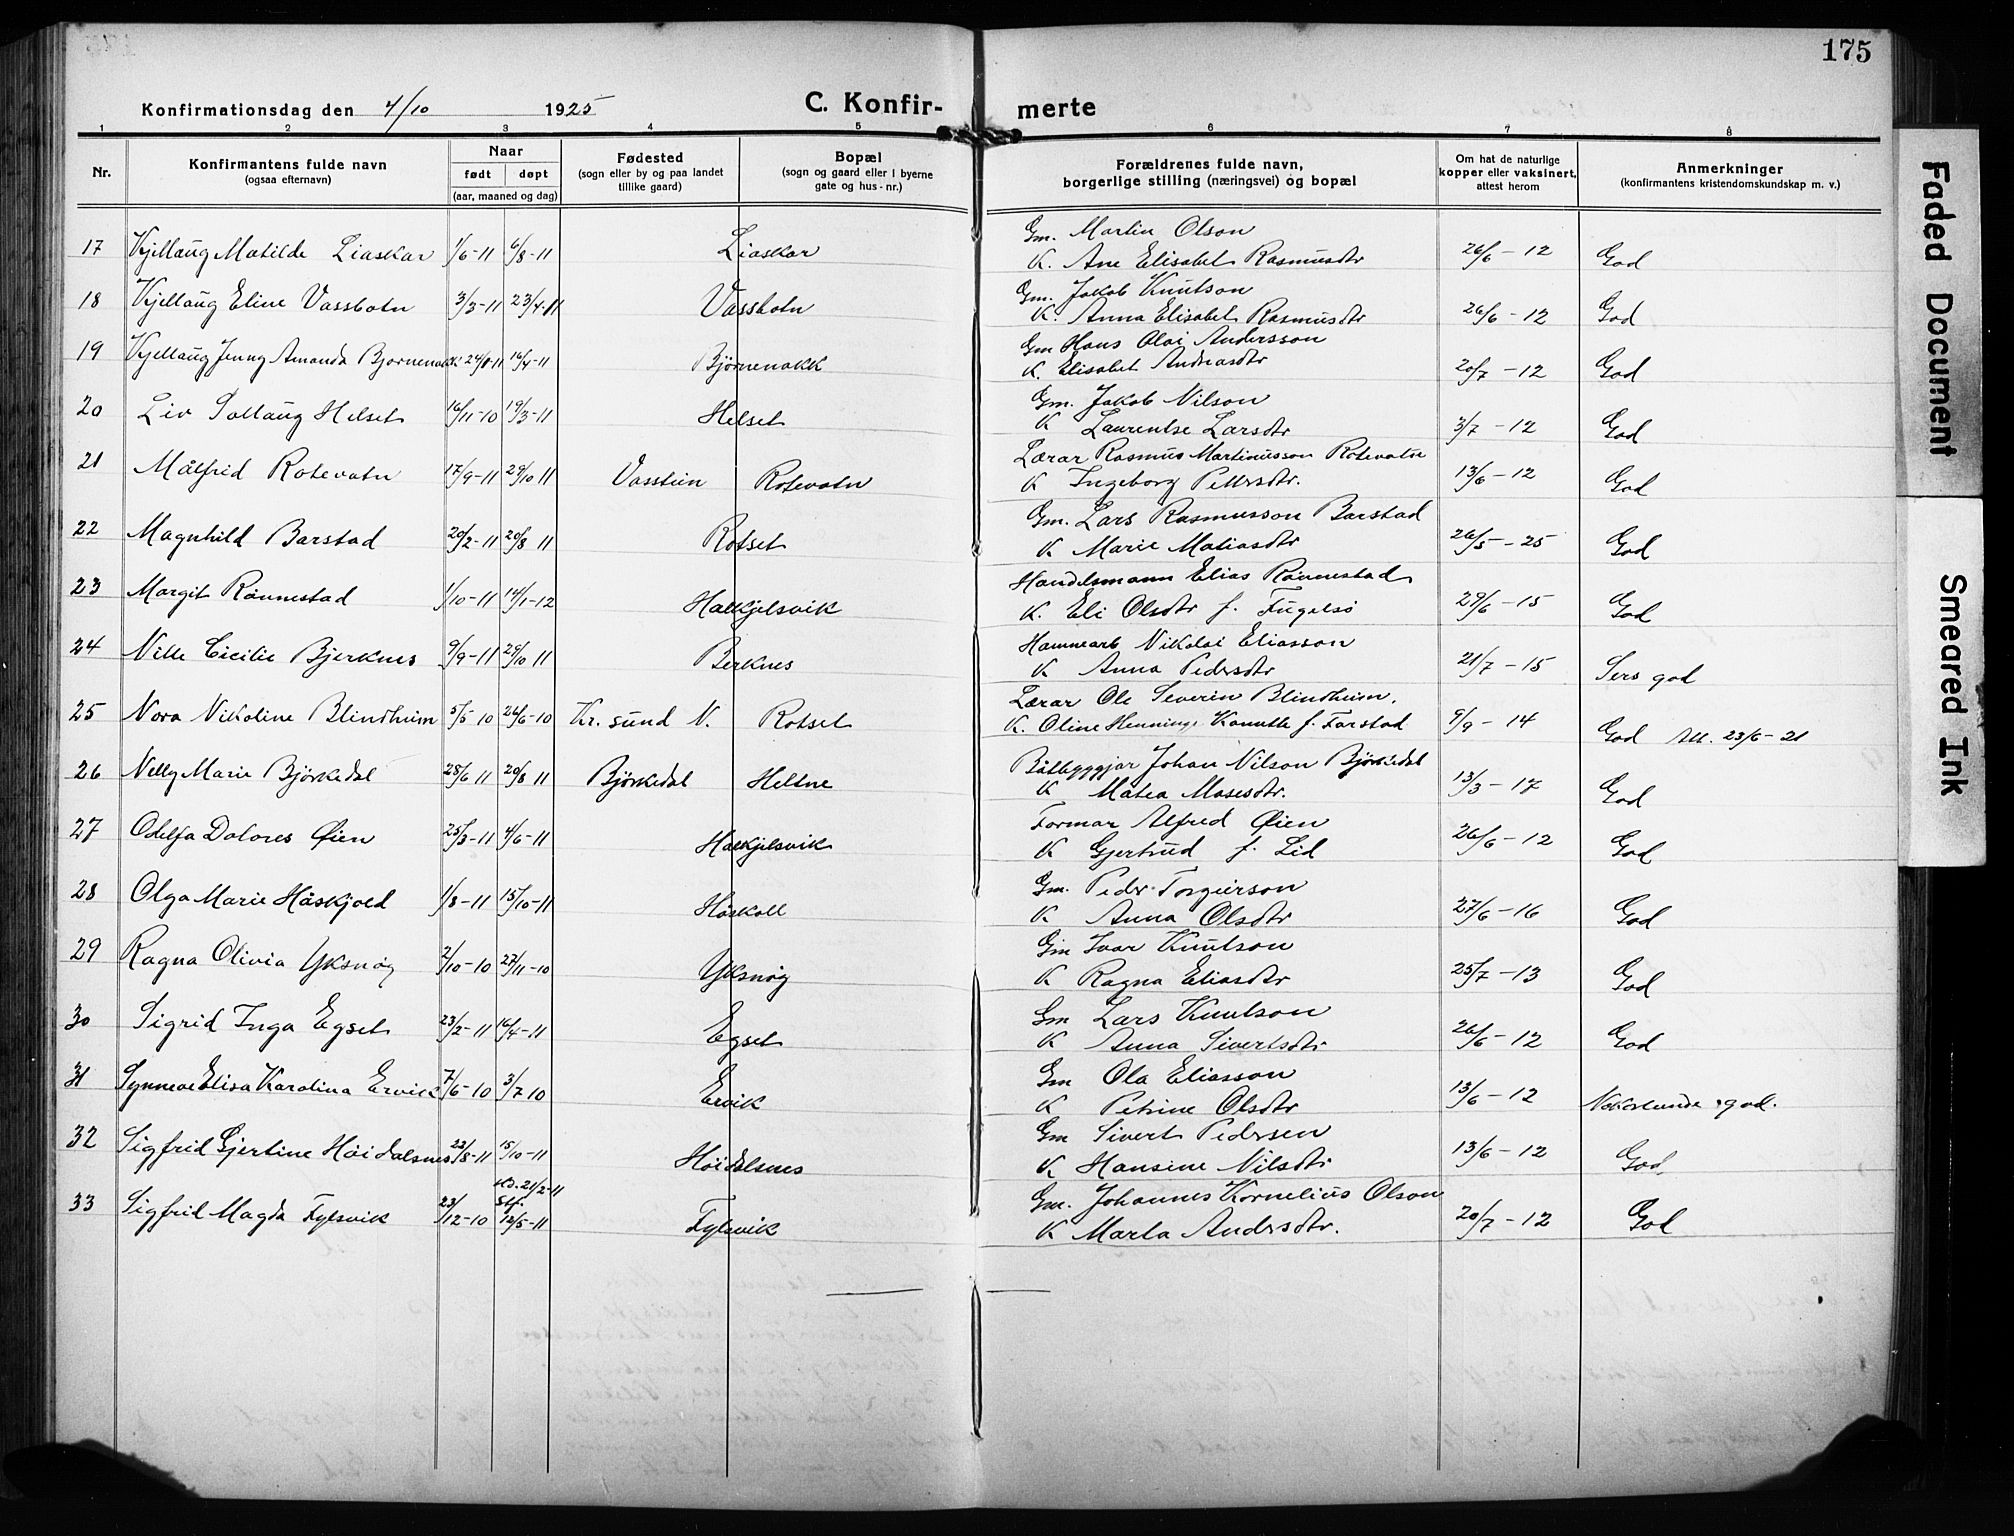 175
Konfirmationsdag den 4/10 1925 C. Konfir- merte
1 2 3 4 5 6 7 8
Nr. Konfirmantens fulde navn (ogsaa efternavn) Naar født døpt (aar, maaned og dag) Fødested (sogn eller by og paa landet tillike gaard) Bopæl (sogn og gaard eller i byerne gate og hus-nr.) Forældrenes fulde navn, borgerlige stilling (næringsvei) og bopæl Om hat de naturlige kopper eller vaksinert, attest herom Anmerkninger (konfirmantens kristendomskundskap m. v.)
17 Kjellaug Matilde Liaskar 1/6-11 6/8-11 Liaskar Gm. Martin Olson
K. Ane Elisabet Rasmusdtr 26/6-12 God
18 Kjellaug Eline Vassbotn 3/3-11 23/4-11 Vassbotn Gm. Jakob Knutson
K. Anna Elisabet Rasmusdtr 26/6-12 God
19 Kjellaug Jenny Amanda Bjørnenakk 16/4-11 Bjørnenakk Gm Hans Olai Andersson
K. Elisabet Andreasdtr 20/7-12 God
20 Liv Sollaug Helset 16/11-10 19/3-11 Helset Gm. Jakob Nilson
K Laurentse Larsdtr 3/7-12 God
21 Målfrid Rotevatn 17/9-11 29/10 11 Vasstein Rotevatn Lærar Rasmus Martinusson Rotevatn
K Ingeborg Pettersdtr. 13/6-12 God
22 Magnhild Barstad 20/2-11 20/8 11 Rotset Gm. Lars Rasmusson Barstad
K Marie Matiasdtr 26/5-25 God
23 Margit Rønnestad 1/10-11 14/1-12 Halkjelsvik Handelsmann Elias Rønnestad
K. Eli Olsdtr f. Fugelsø 29/6-15 God
24 Nille Cicilie Bjerknes 9/9-11 29/10 11 Berknes Hamnearb Nikolai Eliasson
K Anna Pedersdtr 21/7-15 Sers god
25 Nora Nikoline Blindheim 5/5 10 26/6-10 Kr. sund N. Rotset Lærar Ole Severin Blindheim.
K. Oline Henninge Kanutte f. Farstad 9/9-14 God Att. 23/6-21
26 Nelly Marie Bjørkedal 25/6 11 20/8 11 Bjørkedal Heltne Båtbyggjar Johan Nilson Bjørkedal
K Matea Mosesdtr. 13/3-17 God
27 Odelfa Dolores Øien 25/3-11 4/6-11 Halkjelsvik Formar Alfred Øien
K Gjertrud f. Lid 26/6-12 God
28 Olga Marie Håskjold 1/8-11 15/10-11 Håskoll Gm. Peder Torgeirson
K Anna Olsdtr 27/6-16 God
29 Ragna Olivia Yksnøy 2/10-10 27/11-10 Yksnøy Gm Ivar Knutson
K Ragna Eliasdtr 25/7-13 God
30 Sigrid Inga Egset 23/2-11 16/4-11 Egset Gm Lars Knutson
K Anna Sivertsdtr 26/6-12 God
31 Synneve Elisa Karolina Ervik 7/6-10 3/7 10 Ervik Gm Ola Eliasson
K Petrine Olsdtr 13/6-12 Nokorlunde god.
32 Sigfrid Gjertine Høidalsnes 23/8-11 15/10-11 Høidalsnes Gm Sivert Pedersen
K Hansine Nilsdtr 13/6-12 God
33 Sigfrid Magda Fylsvik 23/12-10 21/2-11 12/5-11 Fylsvik Gm. Johannes Kornelius Olson
K Marta Andersdtr. 20/7-12 God
Faded Document
Smeared Ink